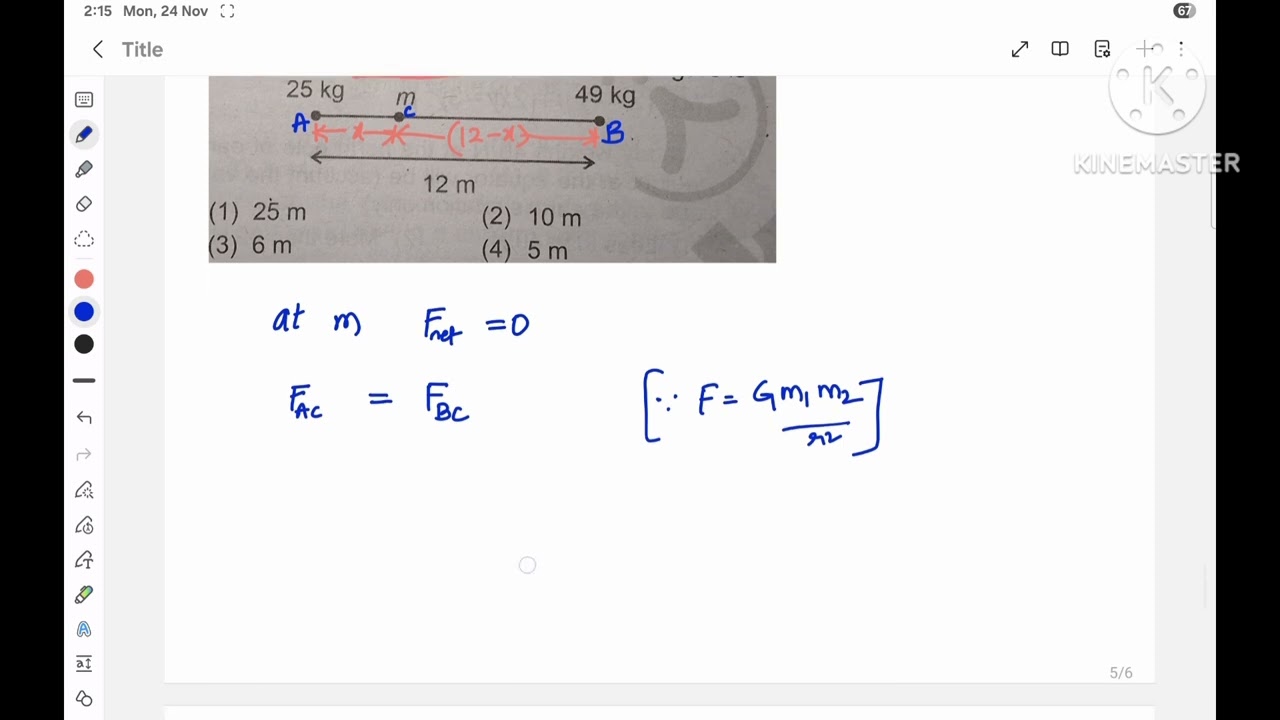 2:15 Mon, 24 Nov
67
Title
KINEMASTER
25 kg m 49 kg
A C B
x (12-x)
12 m
(1) 25 m (2) 10 m
(3) 6 m (4) 5 m
at m Fnet = 0
FAC = FBC [∵ F = G m1 m2 / r2]
5/6